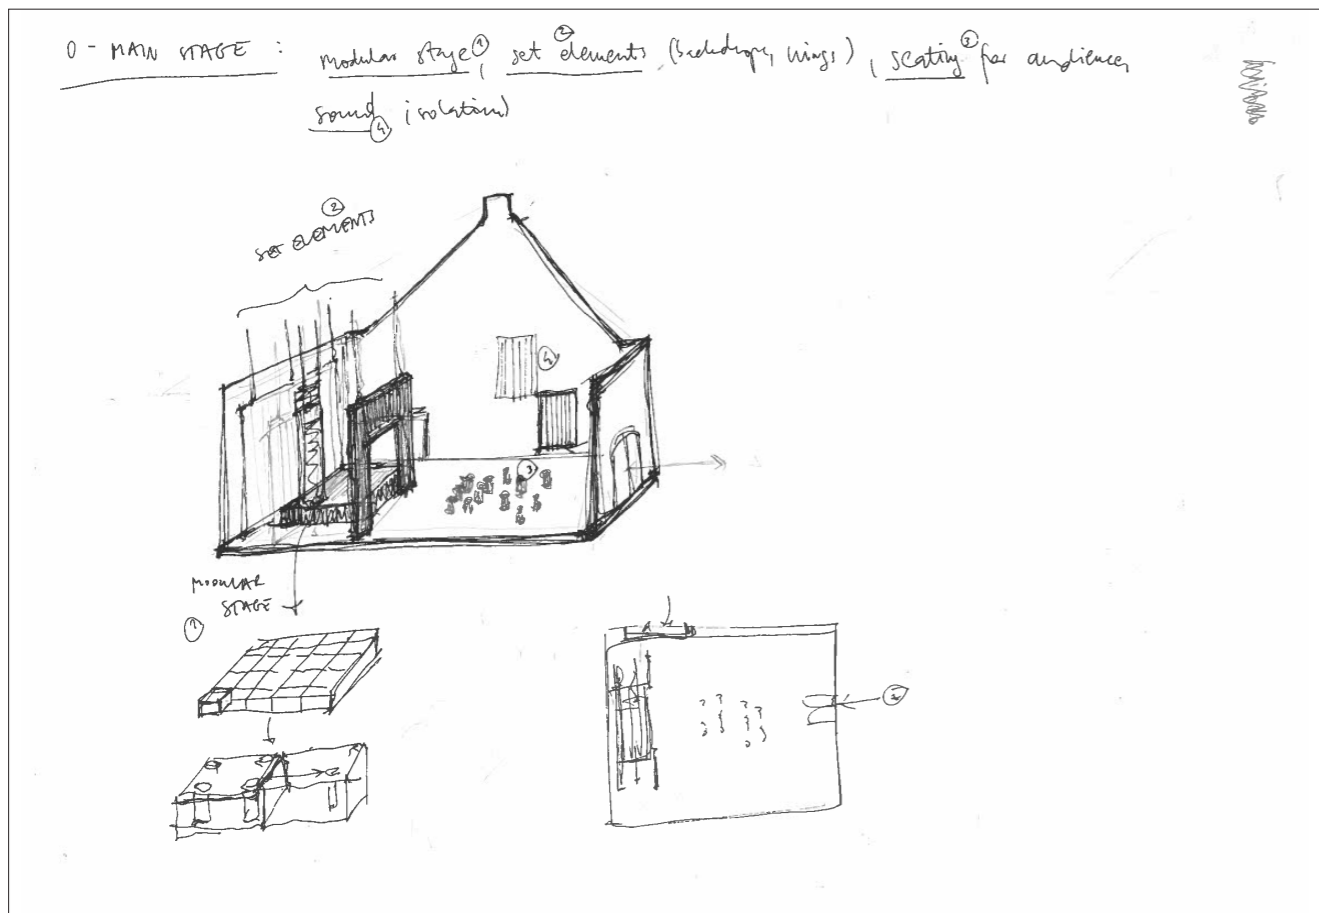 0 - MAIN STAGE : modular stage ①, set elements ② (backdrops, wings), seating ③ for audience,
sound ④ (isolation)
②
SET ELEMENTS
④
③
MODULAR
STAGE
①
③